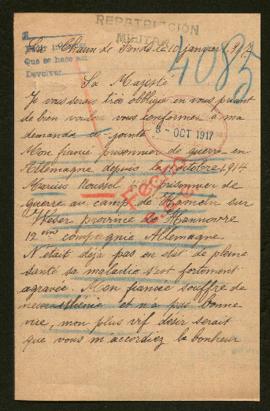 REPATRIACIÓN
MILITAR
La Chaux de Fonds le 10 janvier 1917
4085
Que se hace así
Devolver
Sa Majesté
Je vous serais bien obligée en vous priant
de bien vouloir vous conformer à ma
demande ci-jointe
8 - OCT 1917
Mon fiancé prisonnier de guerre en
Allemagne depuis le octobre 1914.
Marius Roussel prisonnier de
guerre au camp de Hameln sur
Weser Province de Hannovre
12me compagnie Allemagne.
N'était déjà pas en état de pleine
santé sa maladie s'est fortement
agravée. Mon fiancée souffre de
neurasthénie et n'a pas bonne
vue, mon plus vif désir serait
que vous m'accordiez le bonheur